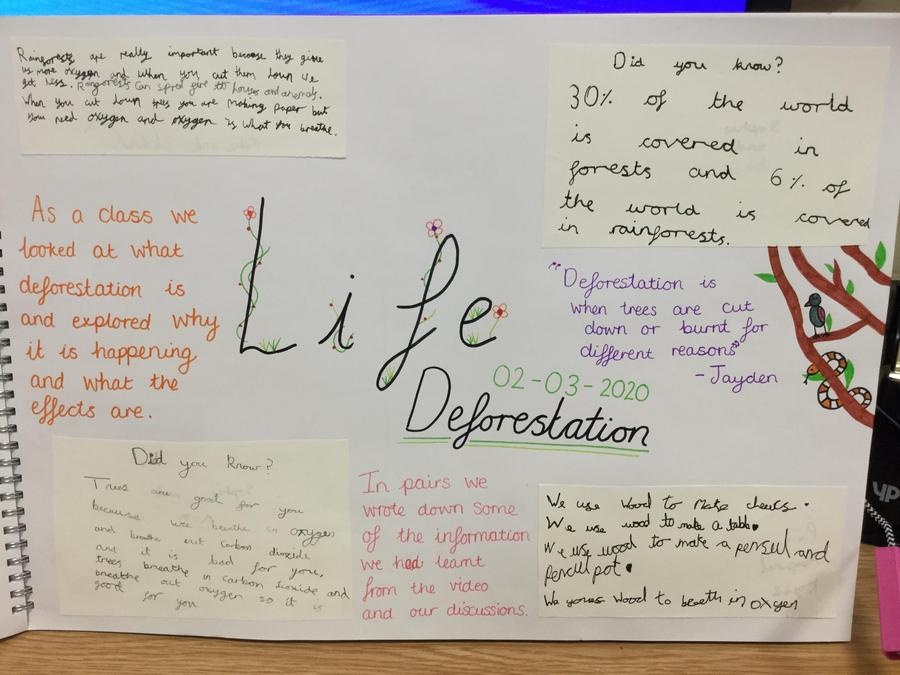 Rainforests are really important because they give
us more oxygen and when you cut them down we
get less. Rainforests can give houses and
When you cut down trees you are making paper but
you need oxygen and oxygen is what you breathe.
Did you know?
30% of the world
is covered in
forests and 6% of
the world is covered
in rainforests.
As a class we
looked at what
deforestation is
and explored why
it is happening
and what the
effects are.
Life
"Deforestation is
when trees are cut
down or burnt for
different reasons"
-Jayden
02-03-2020
Deforestation
Did you know?
Trees are good for you
because we breathe in oxygen
and breathe out carbon dioxide
and it is bad for you,
trees breathe in carbon and
breathe out oxygen so it is
good for you
In pairs we
wrote down some
of the information
we had learnt
from the video
and our discussions.
We use wood to make
We use wood to make a table.
We use wood to make a and
pot.
We wood to in oxyen
YP